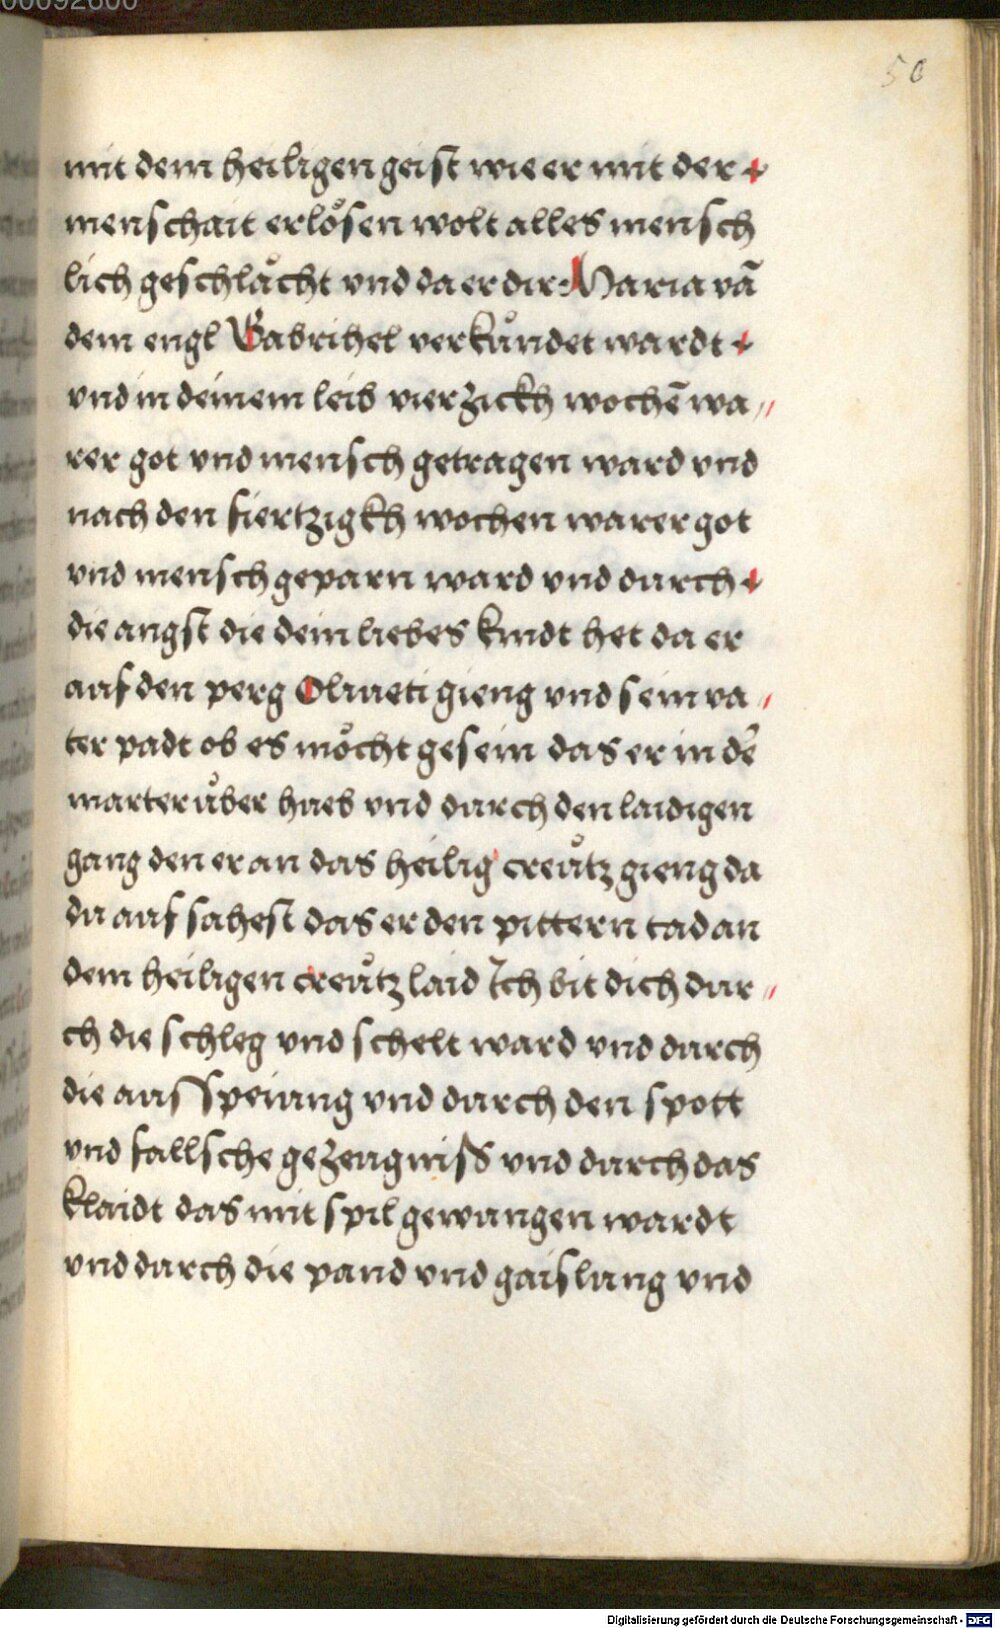 00092600
50
mit dem heiligen geist wie er mit der +
menschait erlo&#x366;sen wolt alles mensch
lich geschla&#x366;cht vnd da er dir Maria vā
dem engl Gabrihel verku&#x366;ndet wardt +
vnd in deinem leib vierzickh wochē wa〃
rer got vnd mensch getragen ward vnd
nach den fiertzigkh wochen warer got
vnd mensch geparn ward vnd durch +
die angst die dein liebes kindt het da er
auf den perg Oliueti gieng vnd sein va〃
ter padt ob es mo&#x366;cht gesein das er in de᷑
marter u&#x366;ber hueb vnd durch den laidigen
gang den er an das heilig creu&#x366;tz gieng da
du auf sahest das er den pittern tad an
dem heiligen creu&#x366;tz laid Ich bit dich dur〃
ch die schleg vnd schelt ward vnd durch
die ausspeiung vnd durch den spott
vnd fallsche gezeugniss vnd durch das
klaidt das mit spil gewungen wardt
vnd durch die pand vnd gaislung vnd
Digitalisierung gefördert durch die Deutsche Forschungsgemeinschaft - DFG